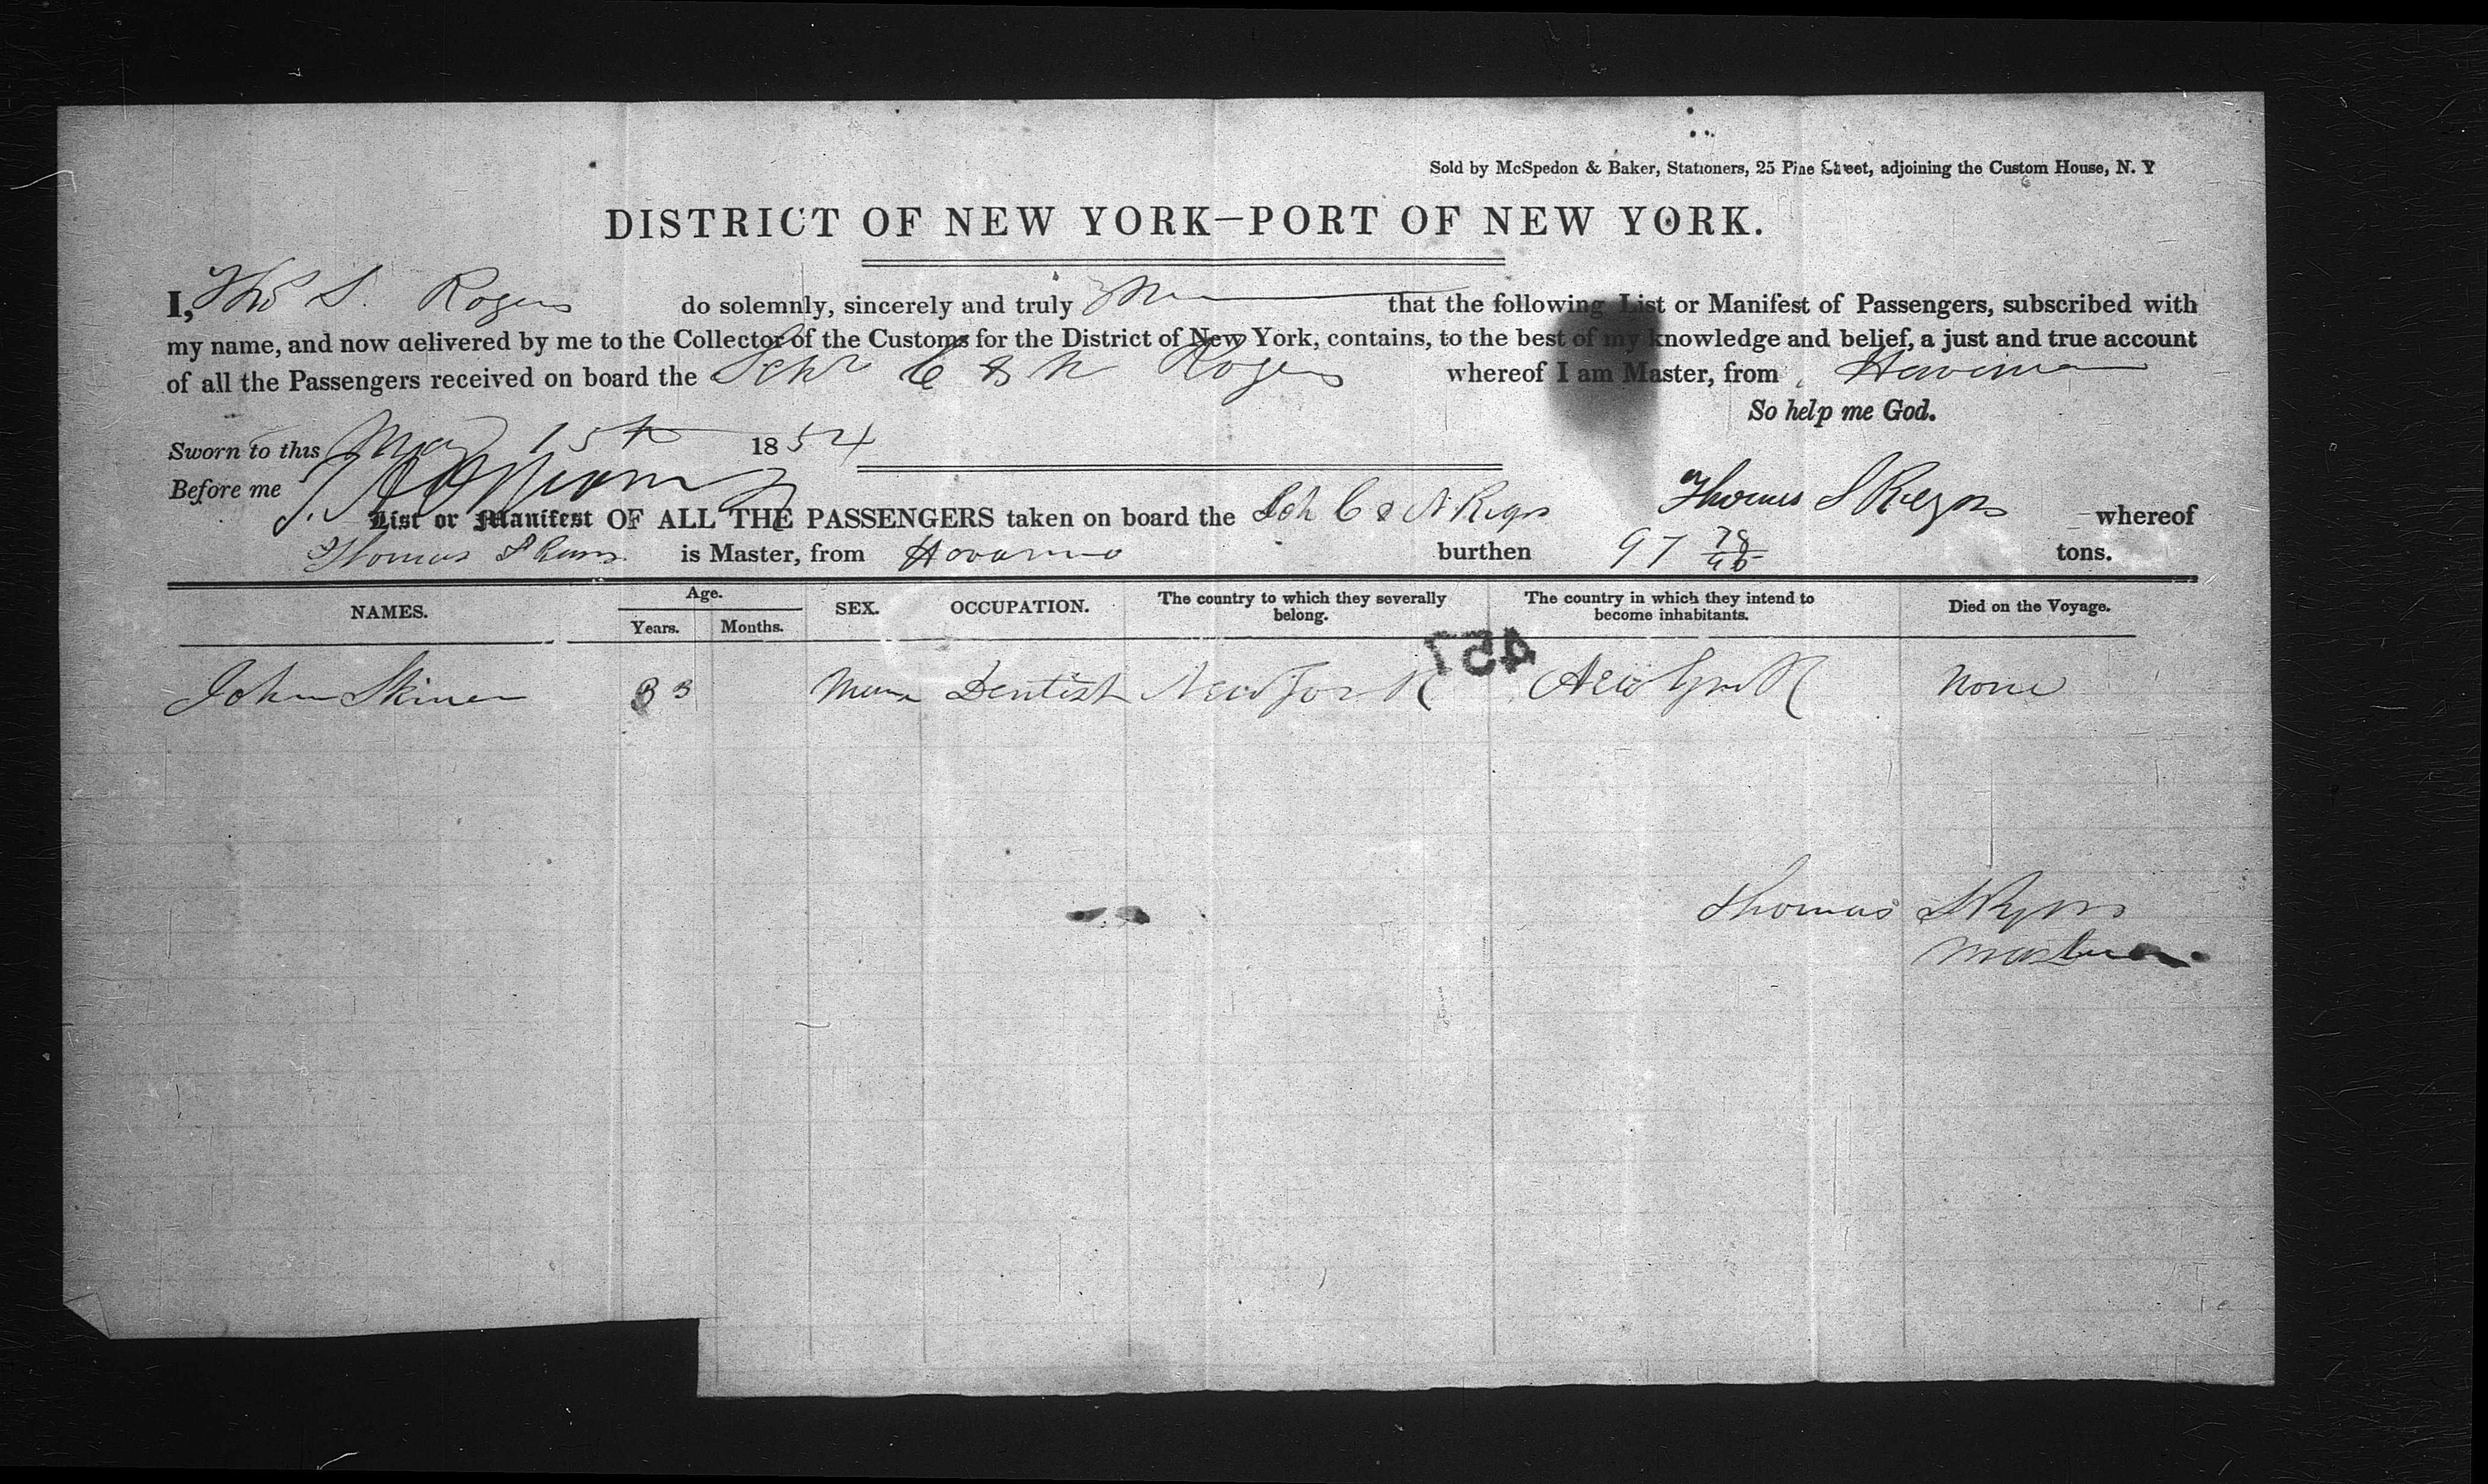 Sold by McSpedon & Baker, Stationers, 25 Pine Street, adjoining the Custom House, N. Y
DISTRICT OF NEW YORK—PORT OF NEW YORK.
I, Thos S. Rogers do solemnly, sincerely and truly that the following List or Manifest of Passengers, subscribed with
my name, and now delivered by me to the Collector of the Customs for the District of New York, contains, to the best of my knowledge and belief, a just and true account
of all the Passengers received on board the Schr C & N Rogers whereof I am Master, from Havana
So help me God.
Sworn to this May 15th 1854
Before me
Thomas S Rogers
List or Manifest OF ALL THE PASSENGERS taken on board the Sch C & N Rogers whereof
Thomas S is Master, from Havana burthen 97 78/95 tons.
NAMES. Age. SEX. OCCUPATION. The country to which they severally belong. The country in which they intend to become inhabitants. Died on the Voyage.
Years. Months.
457
John Skiner 33 Dentist New York New York None
Thomas S Rogers
Master